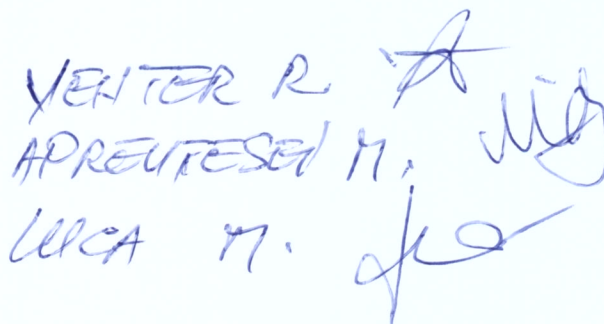 VENTER R.
APREUTESEI M.
LUCA M.